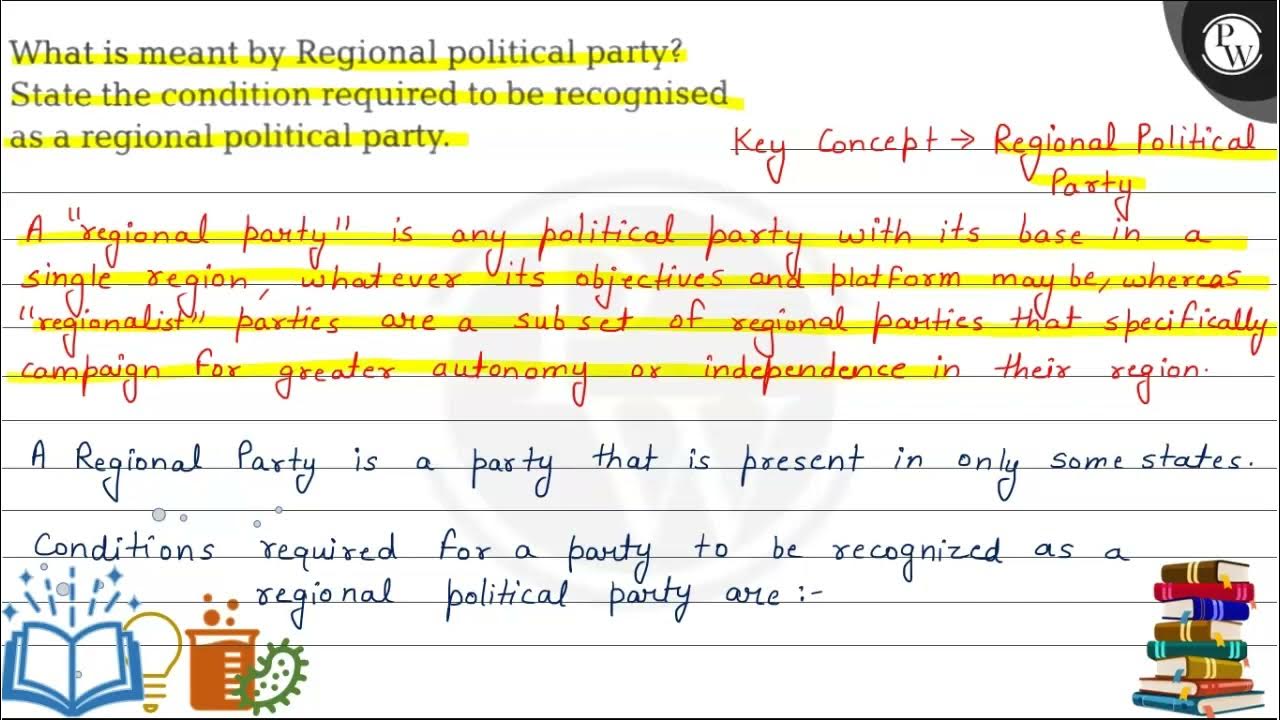 What is meant by Regional political party?
State the condition required to be recognised
as a regional political party.
PW
Key Concept → Regional Political
Party
A "regional party" is any political party with its base in a
single region, whatever its objectives and platform may be, whereas
"regionalist" parties are a subset of regional parties that specifically
campaign for greater autonomy or independence in their region.
A Regional Party is a party that is present in only some states.
Conditions required for a party to be recognized as a
regional political party are :-